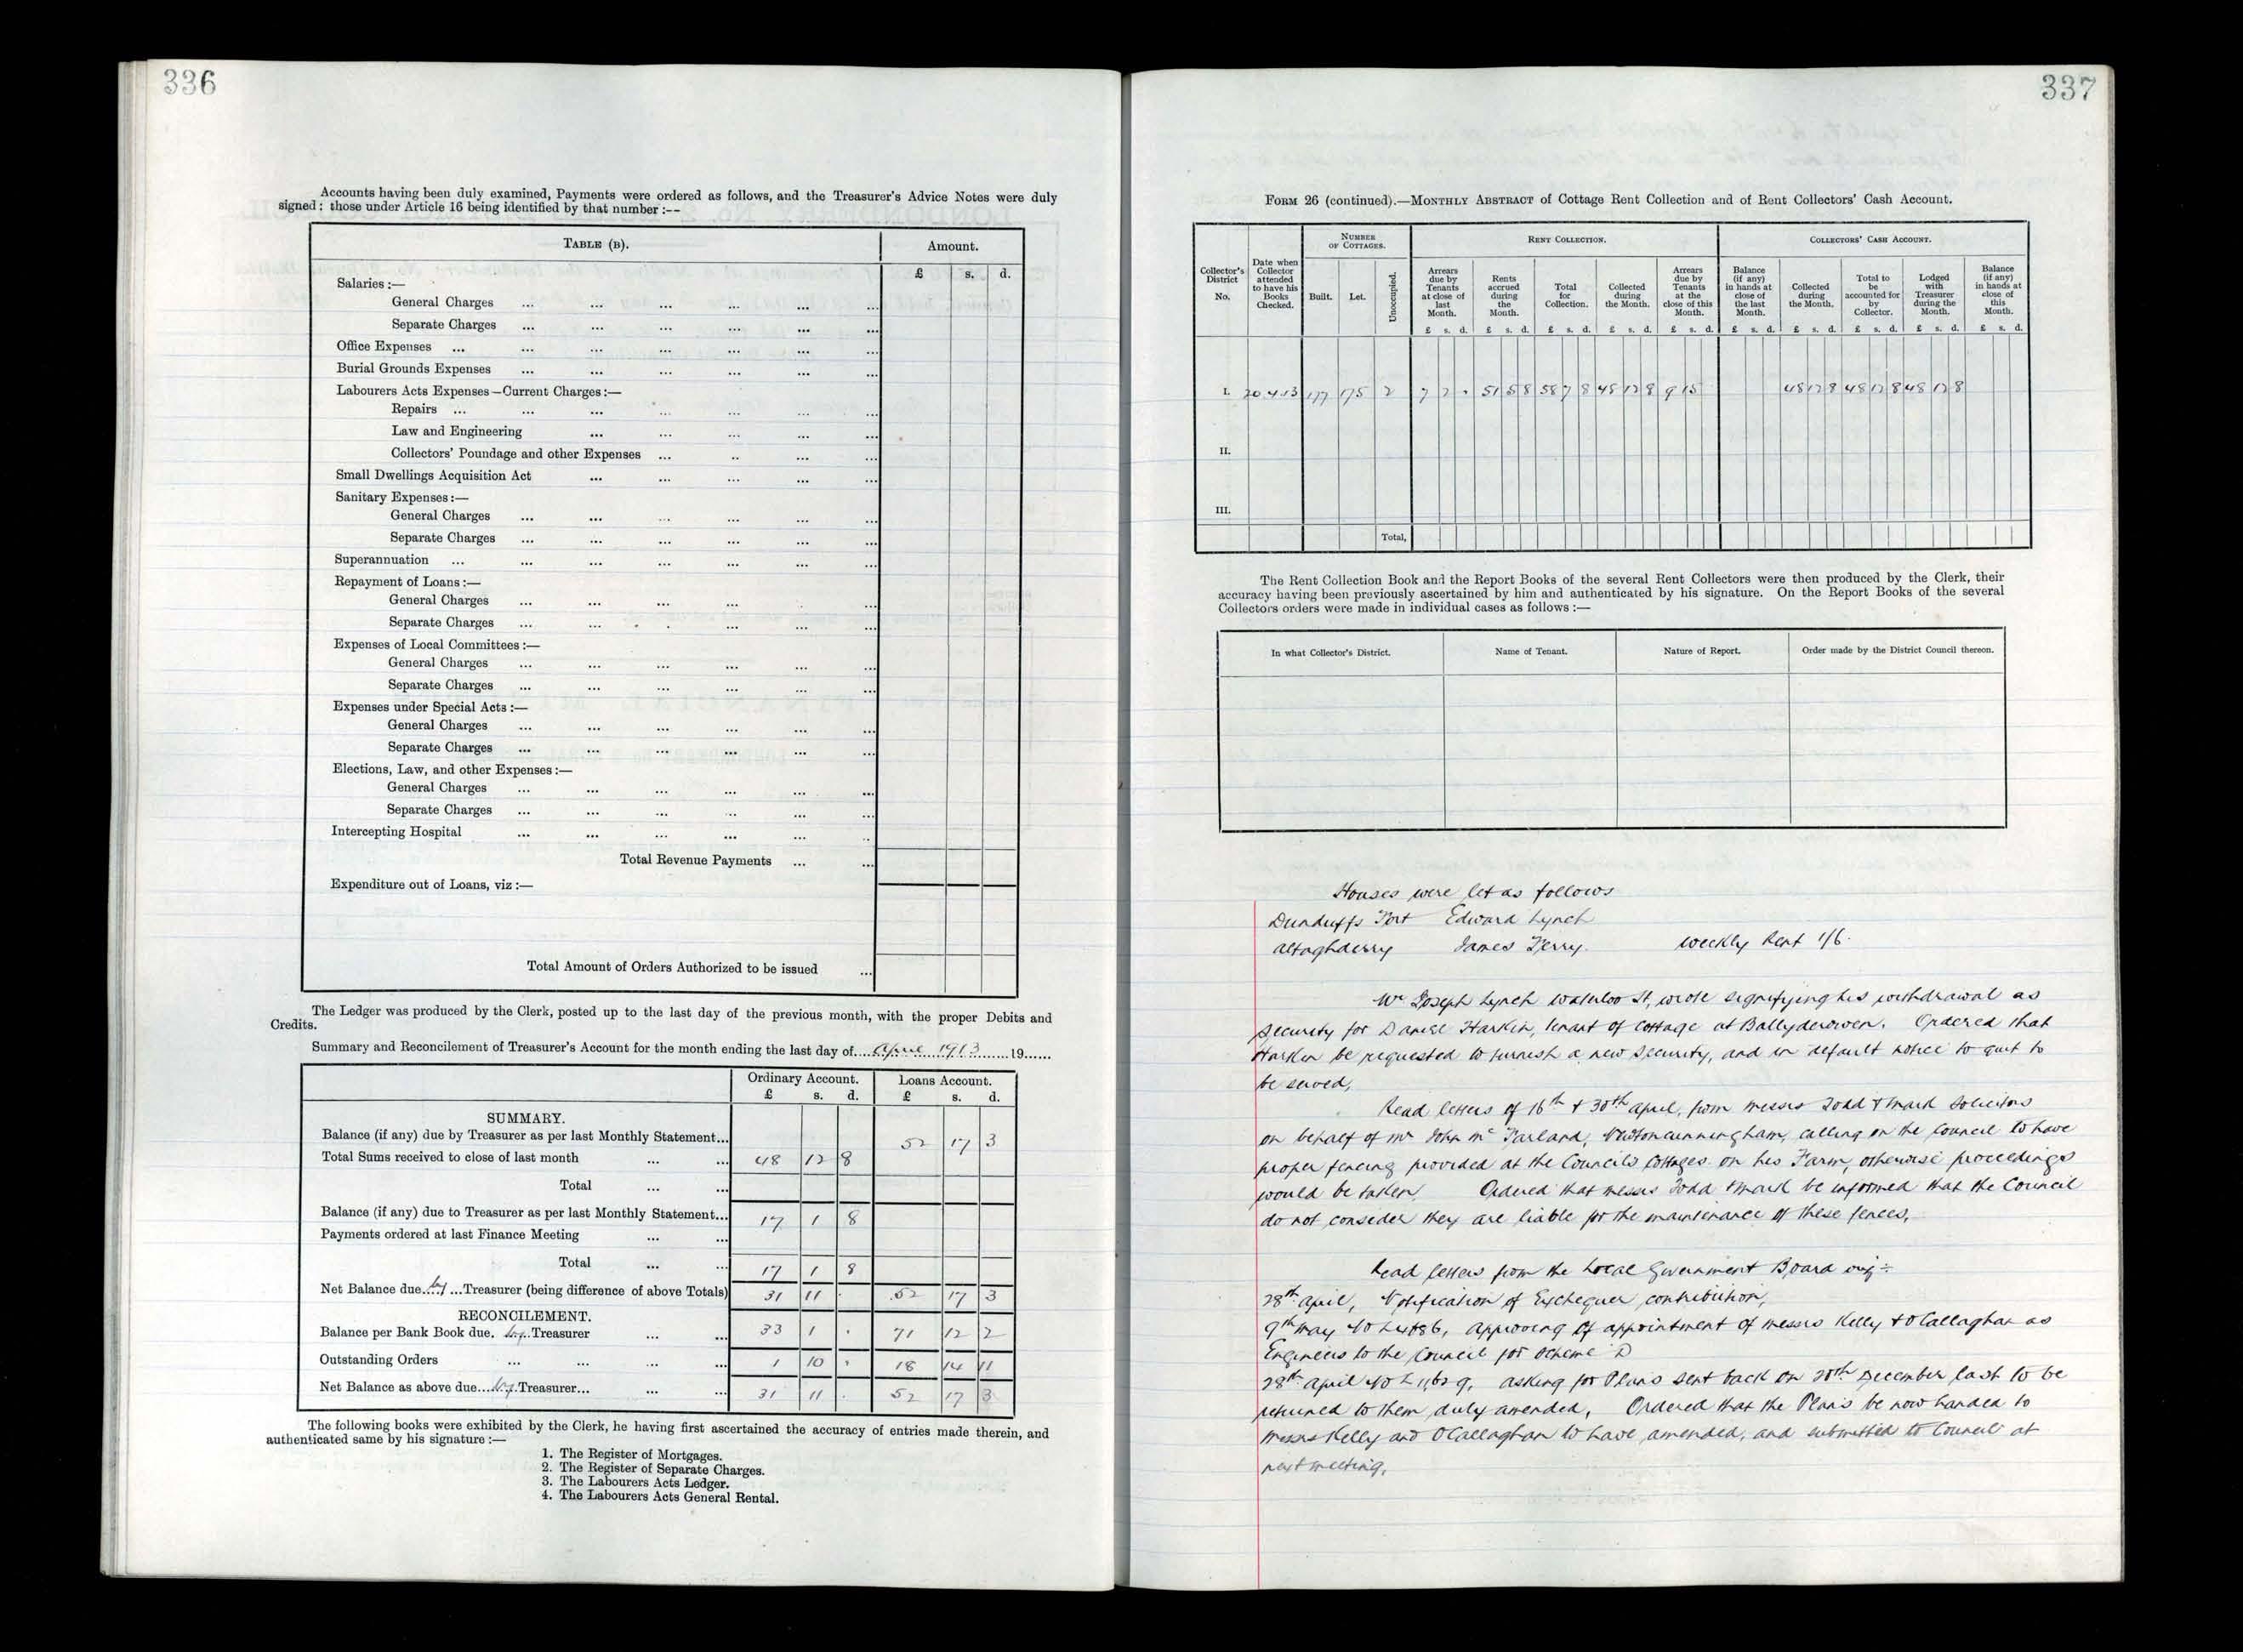 336
Accounts having been duly examined, Payments were ordered as follows, and the Treasurer's Advice Notes were duly
signed: those under Article 16 being identified by that number :--
TABLE (B).
Amount.
£ s. d.
Salaries :—
General Charges ... ... ... ... ... ...
Separate Charges ... ... ... ... ... ...
Office Expenses ... ... ... ... ... ... ...
Burial Grounds Expenses ... ... ... ... ... ...
Labourers Acts Expenses—Current Charges :—
Repairs ... ... ... ... ... ... ...
Law and Engineering ... ... ... ... ...
Collectors' Poundage and other Expenses ... .. ... ...
Small Dwellings Acquisition Act ... ... ... ... ...
Sanitary Expenses :—
General Charges ... ... ... ... ... ...
Separate Charges ... ... ... ... ... ...
Superannuation ... ... ... ... ... ... ...
Repayment of Loans :—
General Charges ... ... ... ... ... ...
Separate Charges ... ... . . ... ... ...
Expenses of Local Committees :—
General Charges ... ... ... ... ... ...
Separate Charges ... ... ... ... ... ...
Expenses under Special Acts :—
General Charges ... ... ... ... ... ...
Separate Charges ... ... ... ... ... ...
Elections, Law, and other Expenses :—
General Charges ... ... ... ... ... ...
Separate Charges ... ... ... ... ... ...
Intercepting Hospital ... ... ... ... ... ..
Total Revenue Payments ... ...
Expenditure out of Loans, viz :—
Total Amount of Orders Authorized to be issued ...
The Ledger was produced by the Clerk, posted up to the last day of the previous month, with the proper Debits and
Credits.
Summary and Reconcilement of Treasurer's Account for the month ending the last day of....April 1913......19......
Ordinary Account. Loans Account.
£ s. d. £ s. d.
SUMMARY.
Balance (if any) due by Treasurer as per last Monthly Statement... 52 17 3
Total Sums received to close of last month ... ... 48 12 8
Total ... ...
Balance (if any) due to Treasurer as per last Monthly Statement... 17 1 8
Payments ordered at last Finance Meeting ... ...
Total ... ... 17 1 8
Net Balance due..by...Treasurer (being difference of above Totals) 31 11 . 52 17 3
RECONCILEMENT.
Balance per Bank Book due. by..Treasurer ... ... 33 1 . 71 12 2
Outstanding Orders ... ... ... ... 1 10 . 18 14 11
Net Balance as above due....by.Treasurer... ... ... 31 11 . 52 17 3
The following books were exhibited by the Clerk, he having first ascertained the accuracy of entries made therein, and
authenticated same by his signature :—
1. The Register of Mortgages.
2. The Register of Separate Charges.
3. The Labourers Acts Ledger.
4. The Labourers Acts General Rental.
337
FORM 26 (continued).—MONTHLY ABSTRACT of Cottage Rent Collection and of Rent Collectors' Cash Account.
NUMBER OF COTTAGES. RENT COLLECTION. COLLECTORS' CASH ACCOUNT.
Collector's District No.
Date when Collector attended to have his Books Checked.
Built. Let. Unoccupied.
Arrears due by Tenants at close of last Month.
Rents accrued during the Month.
Total for Collection.
Collected during the Month.
Arrears due by Tenants at the close of this Month.
Balance (if any) in hands at close of the last Month.
Collected during the Month.
Total to be accounted for by Collector.
Lodged with Treasurer during the Month.
Balance (if any) in hands at close of this Month.
£ s. d. £ s. d. £ s. d. £ s. d. £ s. d. £ s. d. £ s. d. £ s. d. £ s. d. £ s. d.
I. 30.4.13 177 175 2 7 2 . 51 5 8 58 7 8 48 12 8 9 15 48 12 8 48 12 8 48 12 8
II.
III.
Total,
The Rent Collection Book and the Report Books of the several Rent Collectors were then produced by the Clerk, their
accuracy having been previously ascertained by him and authenticated by his signature. On the Report Books of the several
Collectors orders were made in individual cases as follows :—
In what Collector's District. Name of Tenant. Nature of Report. Order made by the District Council thereon.
Houses were let as follows
Dunduffs Fort Edward Lynch
Altaghderry James Ferry. Weekly Rent 1/6.
Mr Joseph Lynch Waterloo St, wrote signifying his withdrawal as
security for Daniel Harkin, tenant of Cottage at Ballyderowen. Ordered that
Harkin be requested to furnish a new security, and in default notice to quit to
be served,
Read letters of 16th & 30th April, from Messrs Todd & Mark Solicitors
on behalf of Mr John Mc Farland, Newtoncunningham, calling on the Council to have
proper fencing provided at the Councils Cottages on his Farm, otherwise proceedings
would be taken. Ordered that Messrs Todd & Mark be informed that the Council
do not consider they are liable for the maintenance of these fences,
Read letters from the Local Government Board viz:-
28th April, Notification of Exchequer contribution,
9th May No approving of appointment of Messrs Kelly & O'Callaghan as
Engineers to the Council for Scheme D
28th April No asking for Plans sent back on December last to be
returned to them duly amended, Ordered that the Plans be now handed to
Messrs Kelly and O'Callaghan to have amended, and submitted to Council at
next meeting,